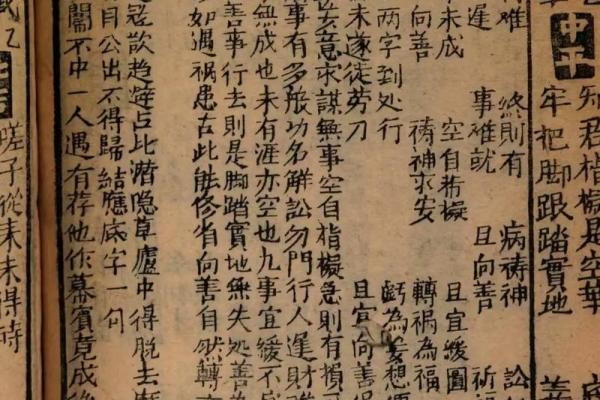 中
知君指擬是空華
牢把脚跟踏實地
难 終則有 病祷神 訟
遲 事难就 且向善 祈
未成 空自指擬 且宜緩圖
向善 祷神求安 轉禍為福
两字到处行 虧為妄想
未遂徒劳力 且宜向善保
妄意求謀無事空自指擬急則有損
事有多般功名解訟勿門行人遲財
無成也未有涯亦空也九事宜緩不
善事行去則是脚踏實地無失処善
如遇禍患占此能修省向善自然轉
趋避占此潜隐草廬中得脱去
自公出不得歸結應底字一句
闈不中一人遇有荐他作幕賓竟成後
嗟子從来未得時